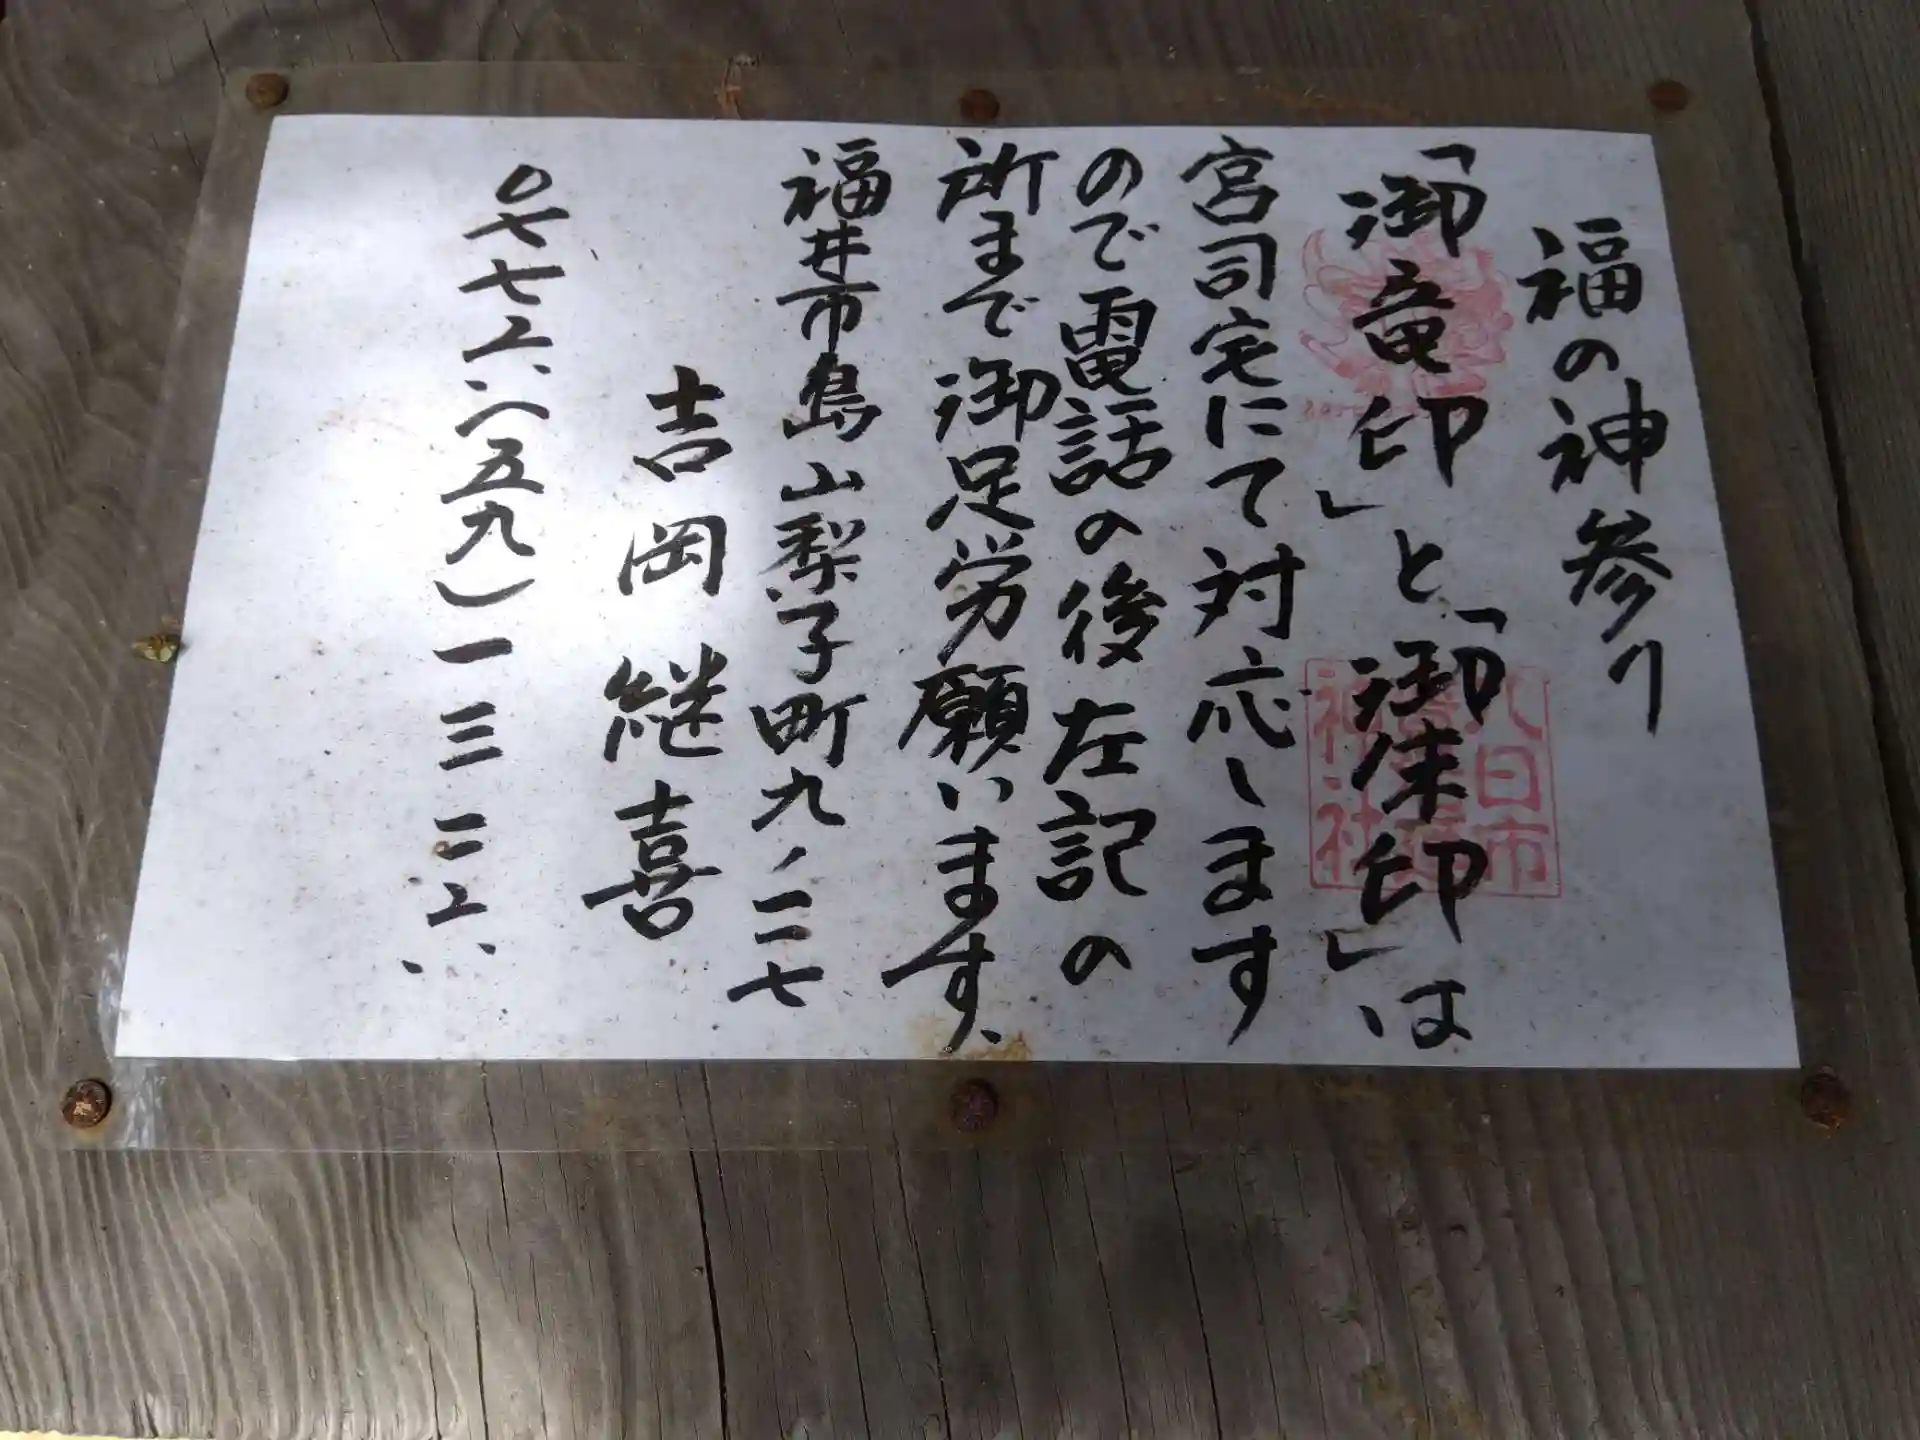 福の神参り
「御竜印」と「御朱印」は
宮司宅にて対応します
ので電話の後左記の
所まで御足労願います、
福井市島山梨子町九ノ二七
吉岡継喜
〇七七六(五九)一三二六
八日市
神社